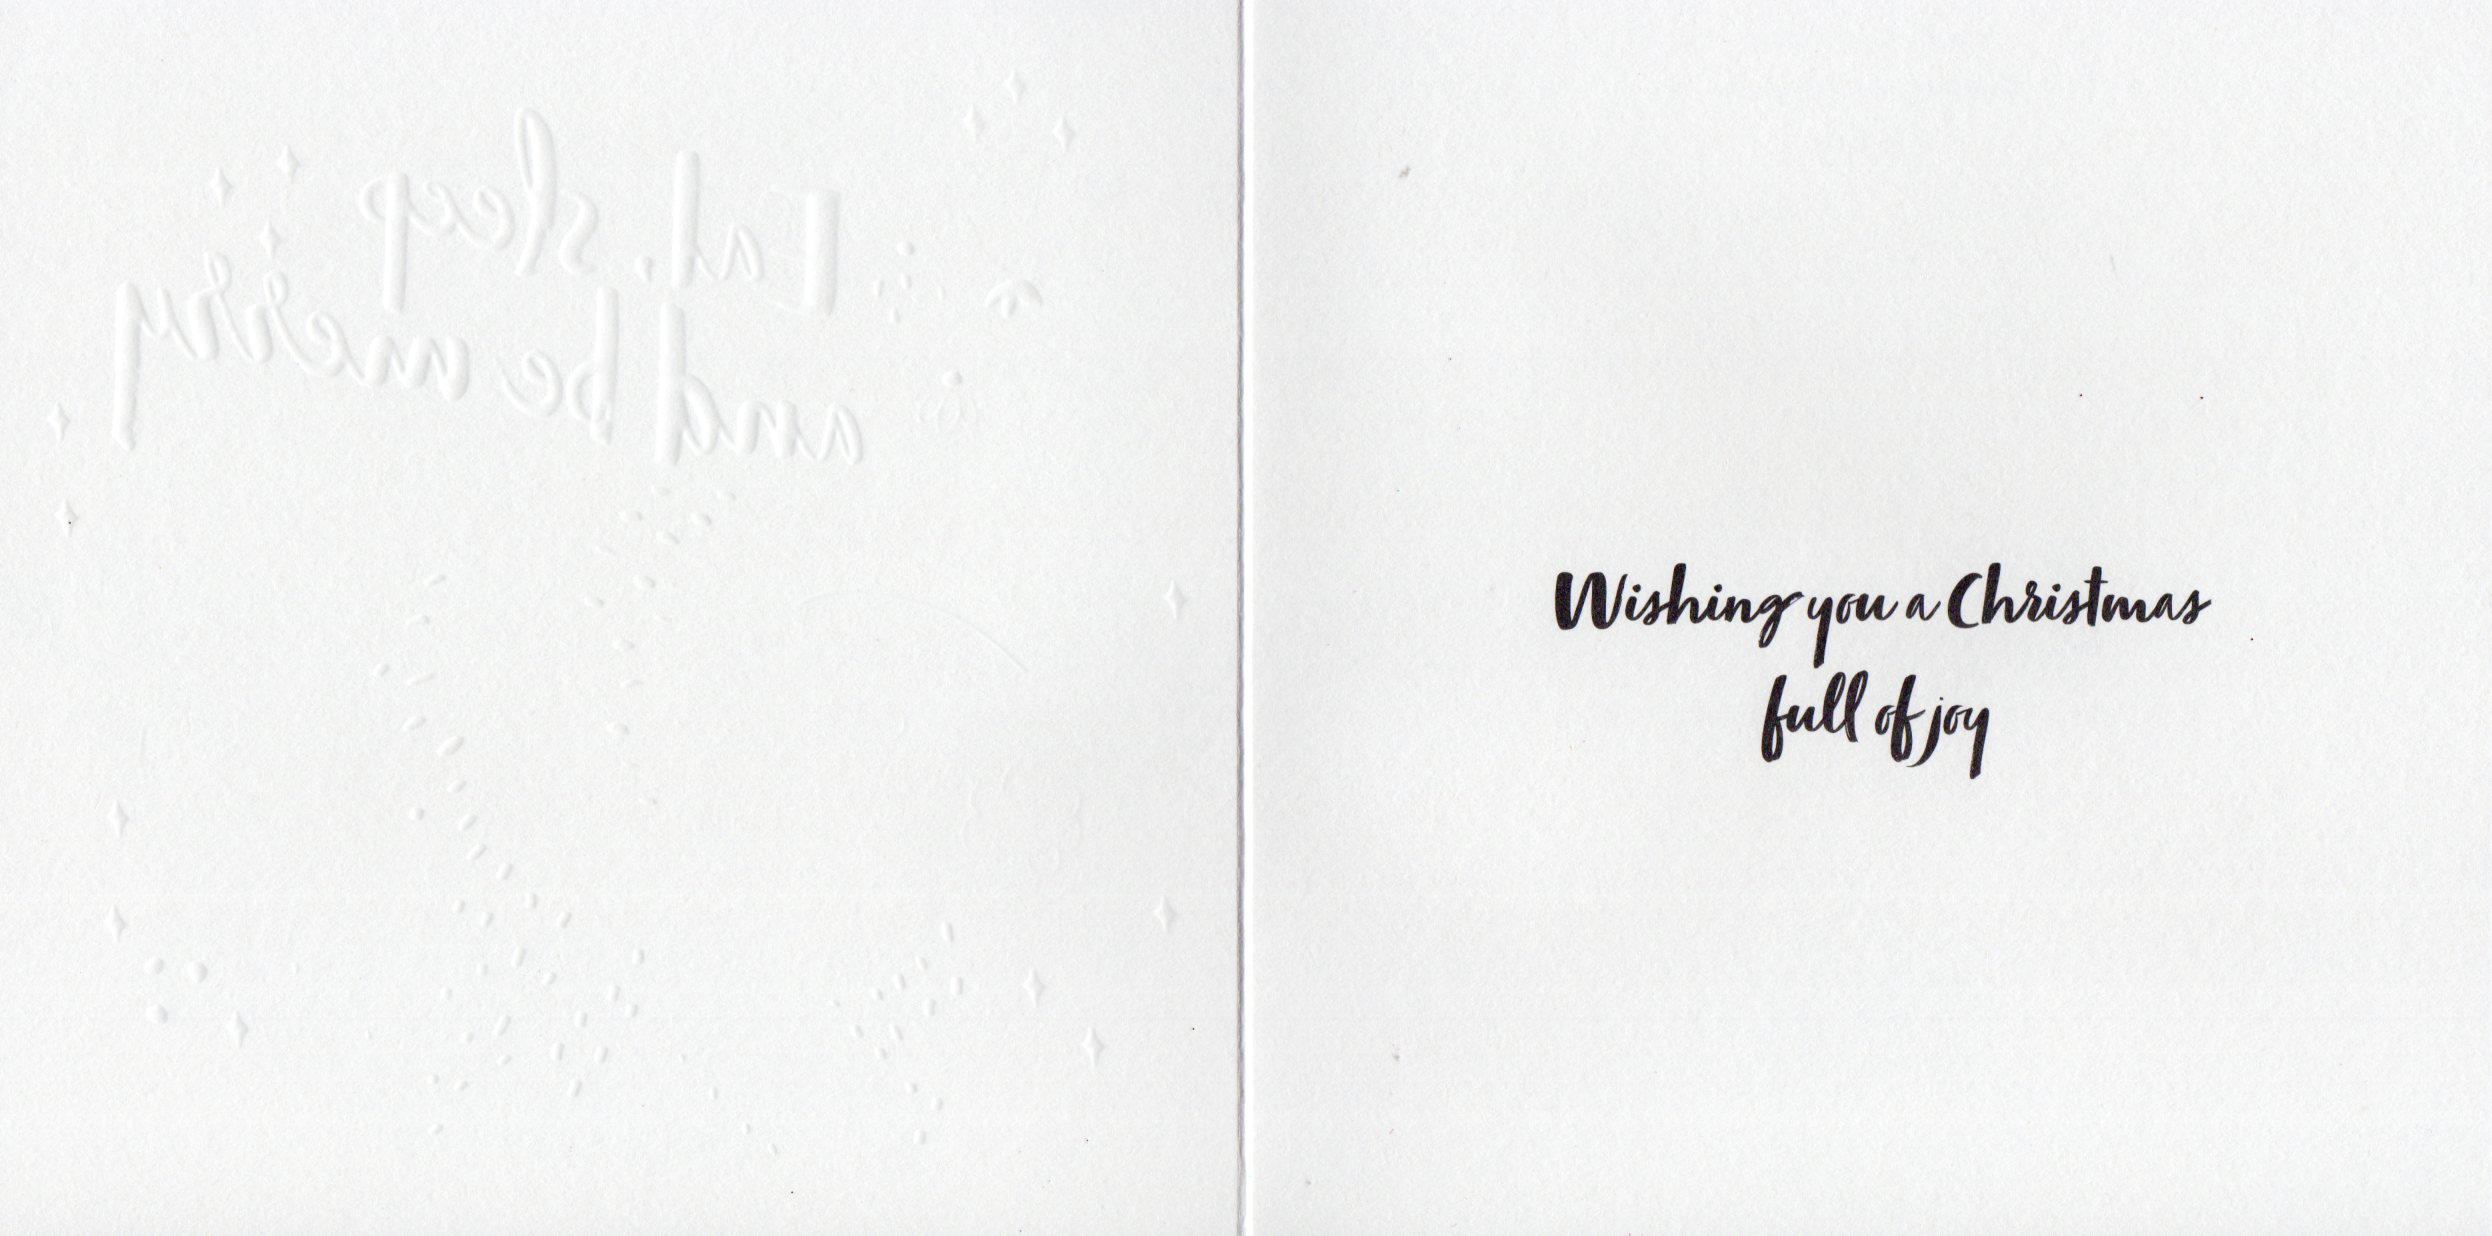 Eat, sleep
and be merry
Wishing you a Christmas
full of joy